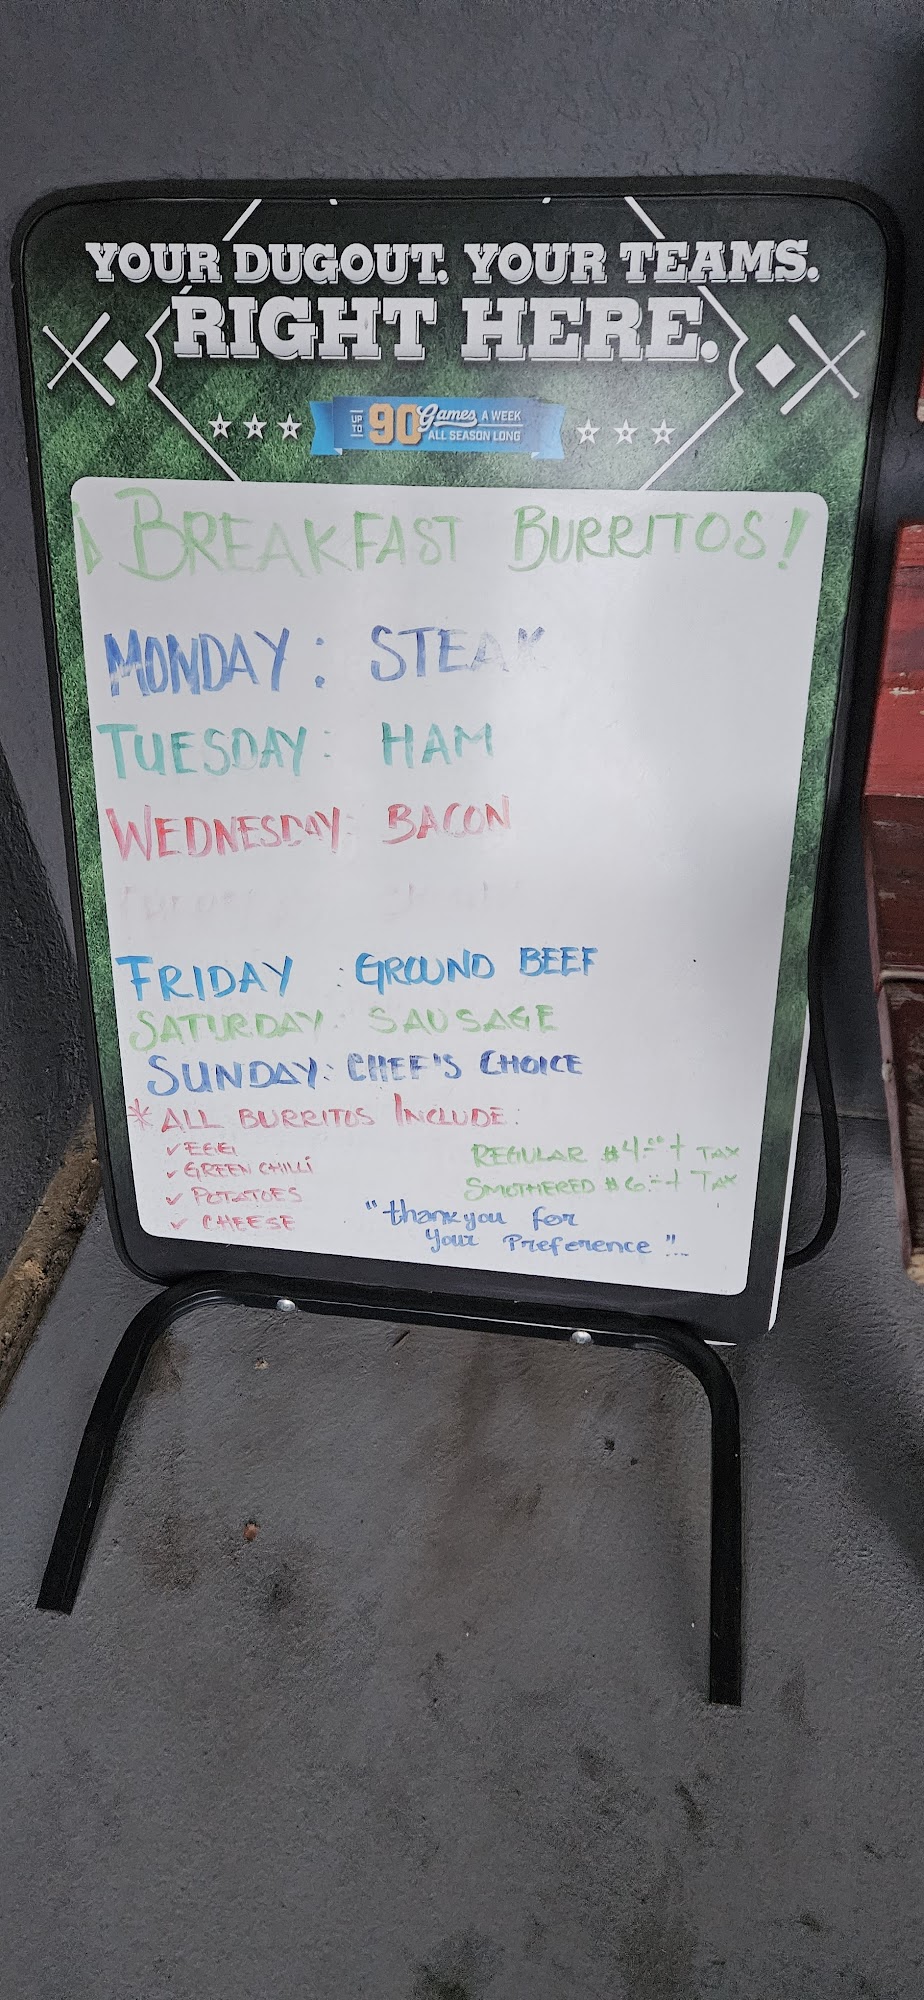 YOUR DUGOUT. YOUR TEAMS.
RIGHT HERE.
UP TO 90 Games A WEEK
ALL SEASON LONG
¡BREAKFAST BURRITOS!
MONDAY: STEAK
TUESDAY: HAM
WEDNESDAY: BACON
FRIDAY : GROUND BEEF
SATURDAY: SAUSAGE
SUNDAY: CHEF'S CHOICE
* ALL BURRITOS INCLUDE:
✓ EGG
✓ GREEN CHILLI
✓ POTATOES
✓ CHEESE
REGULAR $4.00 + TAX
SMOTHERED $6.00 + TAX
"thank you for
your Preference"...